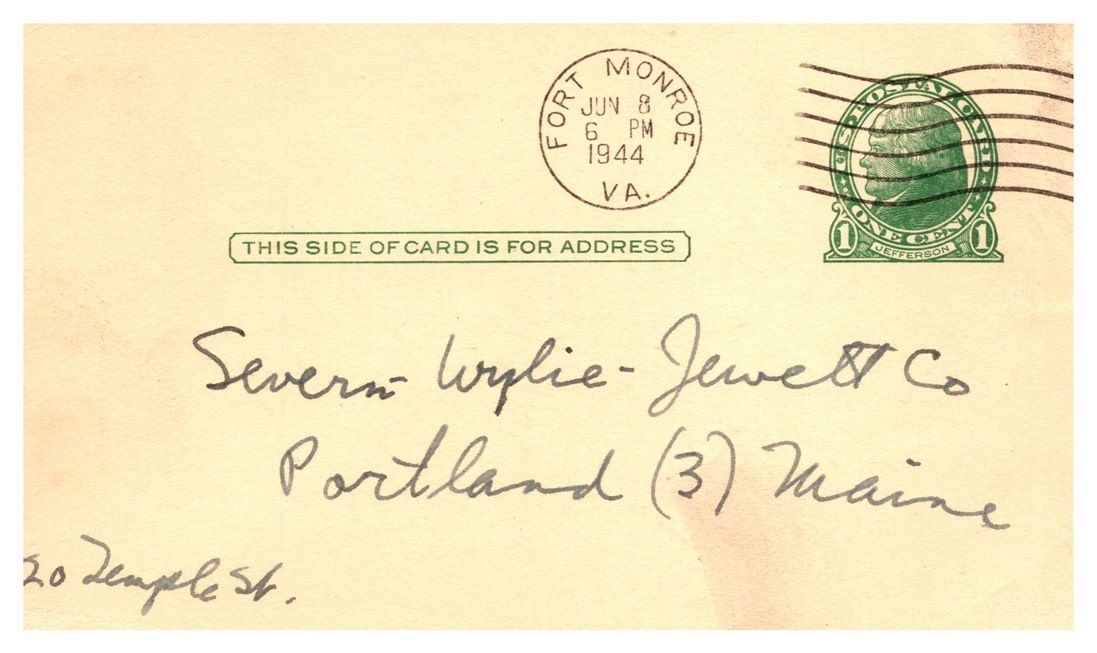 FORT MONROE
JUN 8
6 PM
1944
VA.
U.S. POSTAL CARD
ONE CENT
1 JEFFERSON 1
THIS SIDE OF CARD IS FOR ADDRESS
Severn-Wylie-Jewett Co
Portland (3) Maine
20 Temple St.